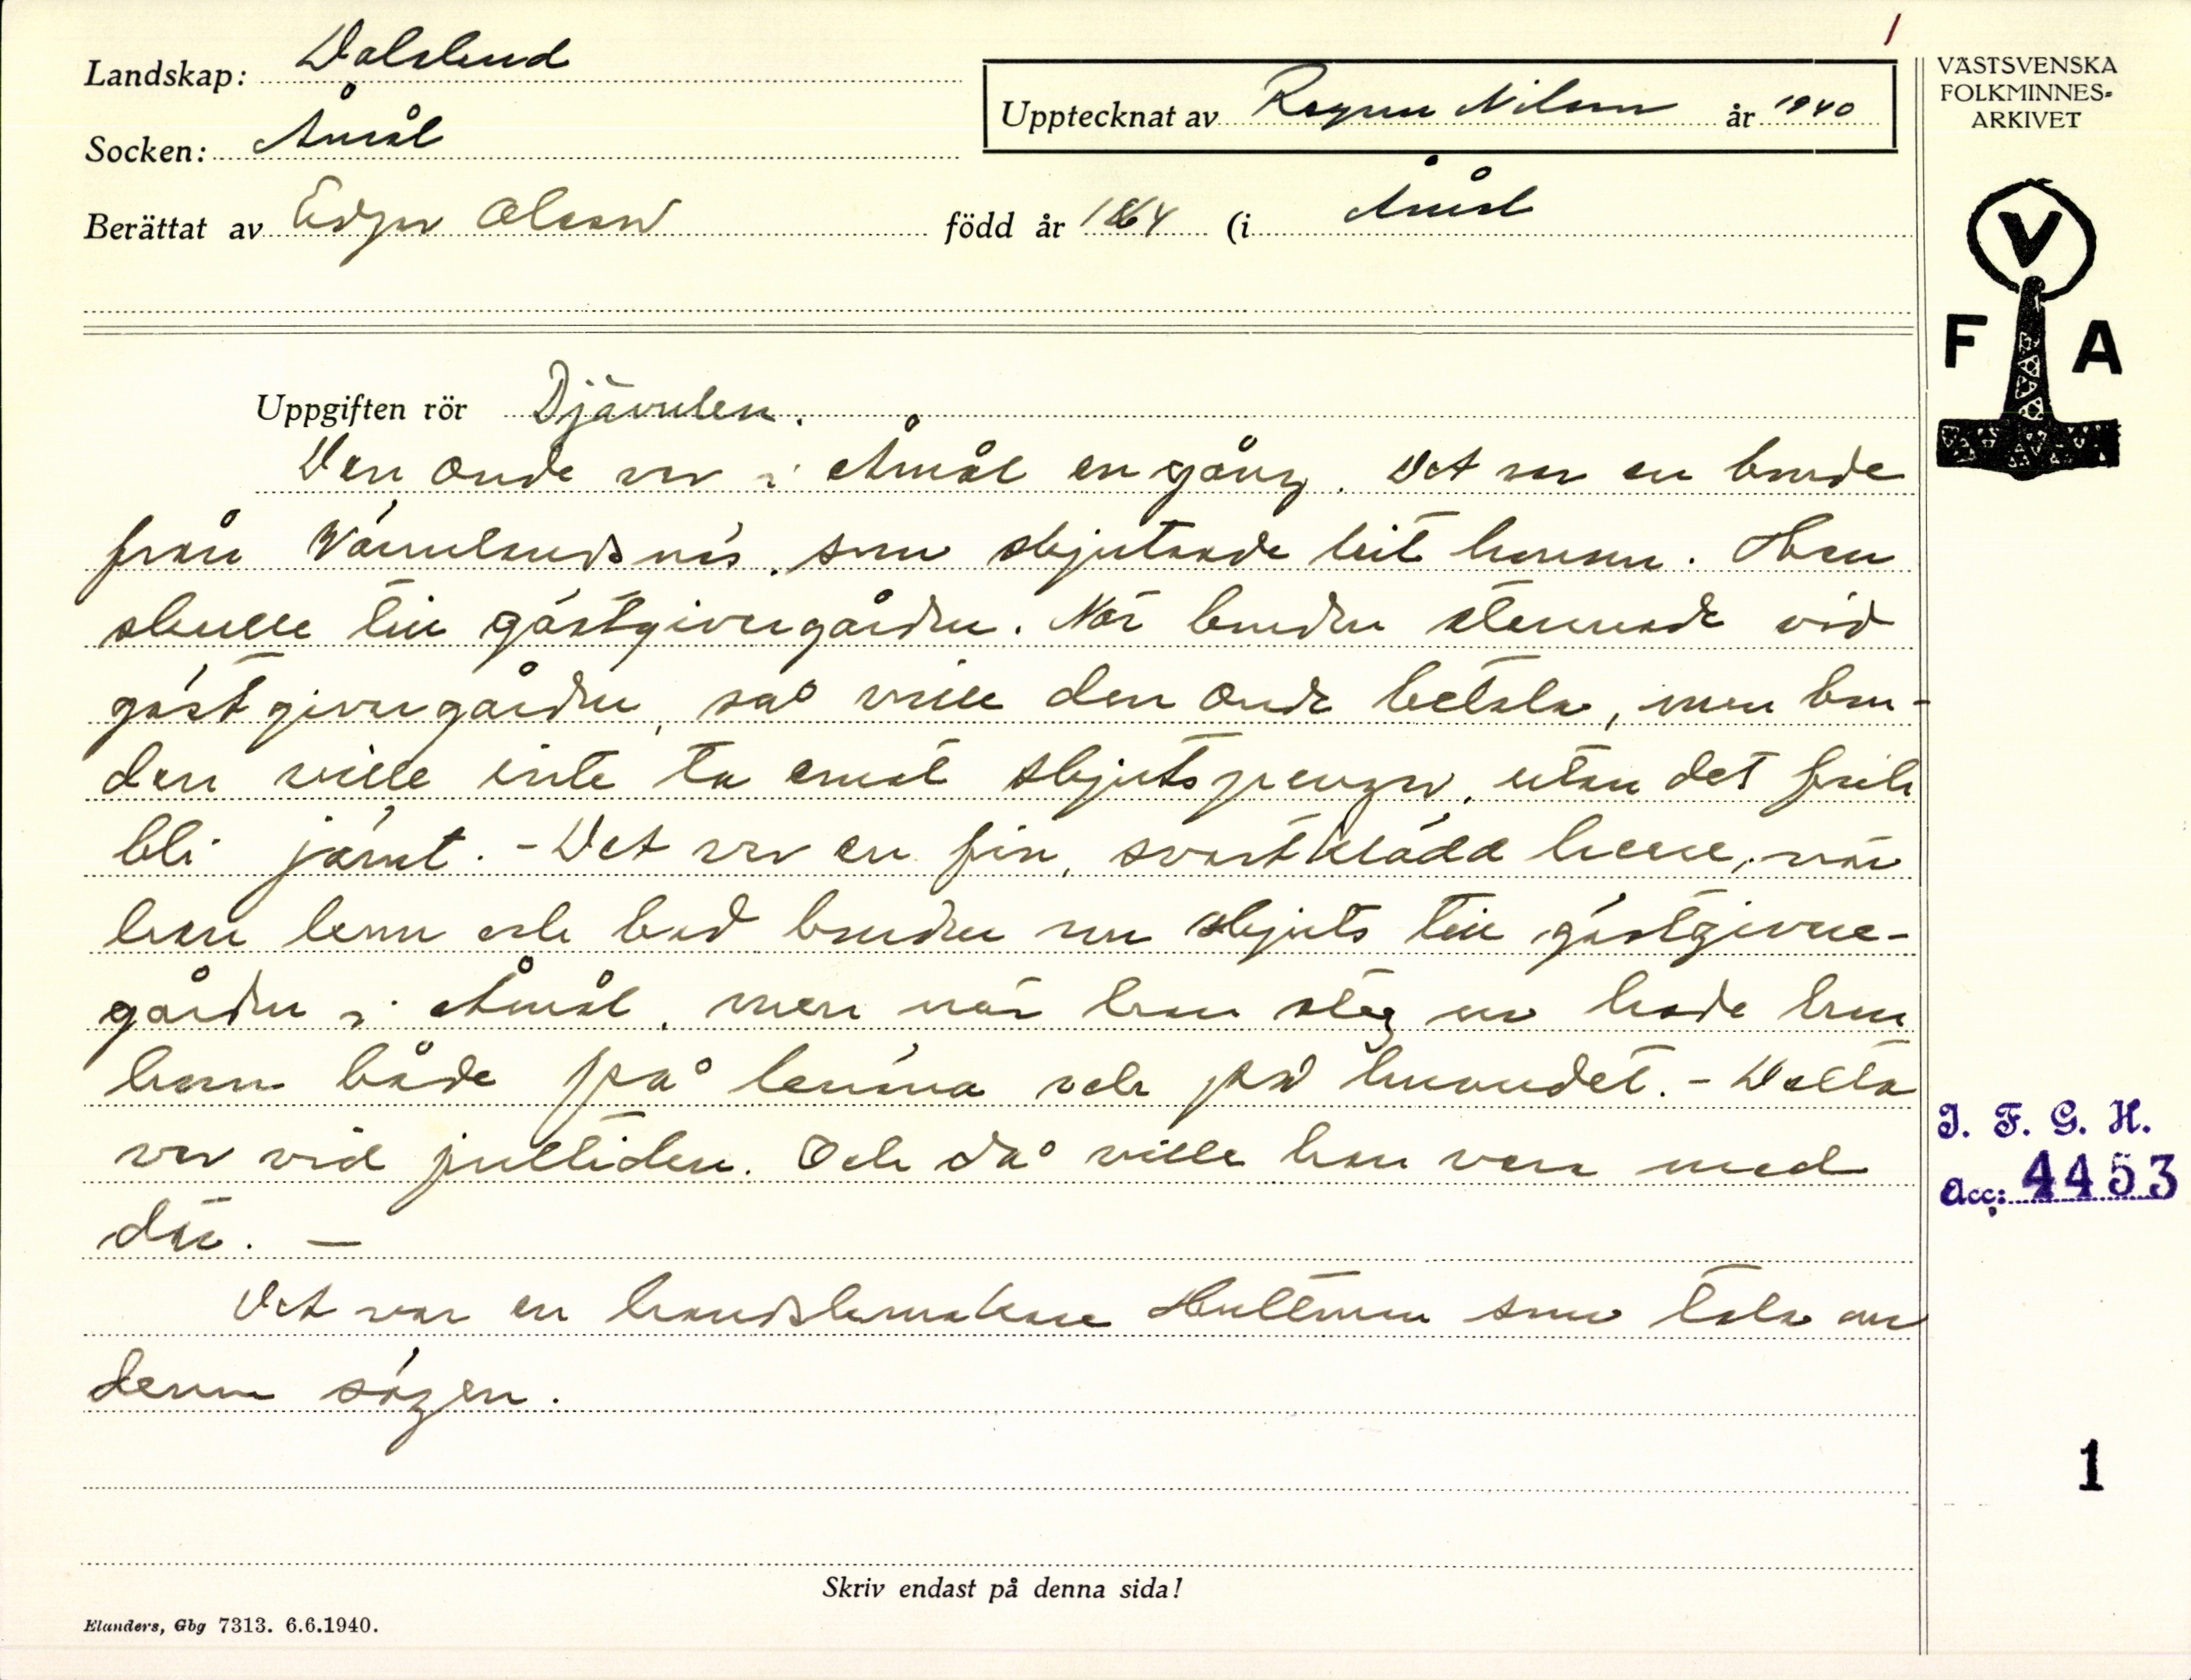 1
Landskap: Dalsland
Socken: Åmål
Upptecknat av Ragnar Nilsson år 1940
Berättat av Edgar Olsson född år 1864 (i Åmål
VÄSTSVENSKA
FOLKMINNES-
ARKIVET
V
F A
Uppgiften rör Djävulen.
Den onde var i Åmål en gång. Det var en bonde
från Värmlandsnäs, som skjutsade hit honom. Han
skulle till gästgivargården. När bonden stannade vid
gästgivargården, så ville den onde betala, men bon-
den ville inte ta emot skjutspengar, utan det fick
bli jämt. - Det var en fin, svartklädd herre, när
han kom och bad bonden om skjuts till gästgivare-
gården i Åmål, men när han steg ur hade han
horn både på knäna och på huvudet. - Detta
var vid jultiden. Och då ville han vara med
där. —
Det var en handskmakare Hultman som tala om
denna sägen.
I. F. G. H.
Acc: 4453
1
Skriv endast på denna sida!
Elanders, Gbg 7313. 6.6.1940.